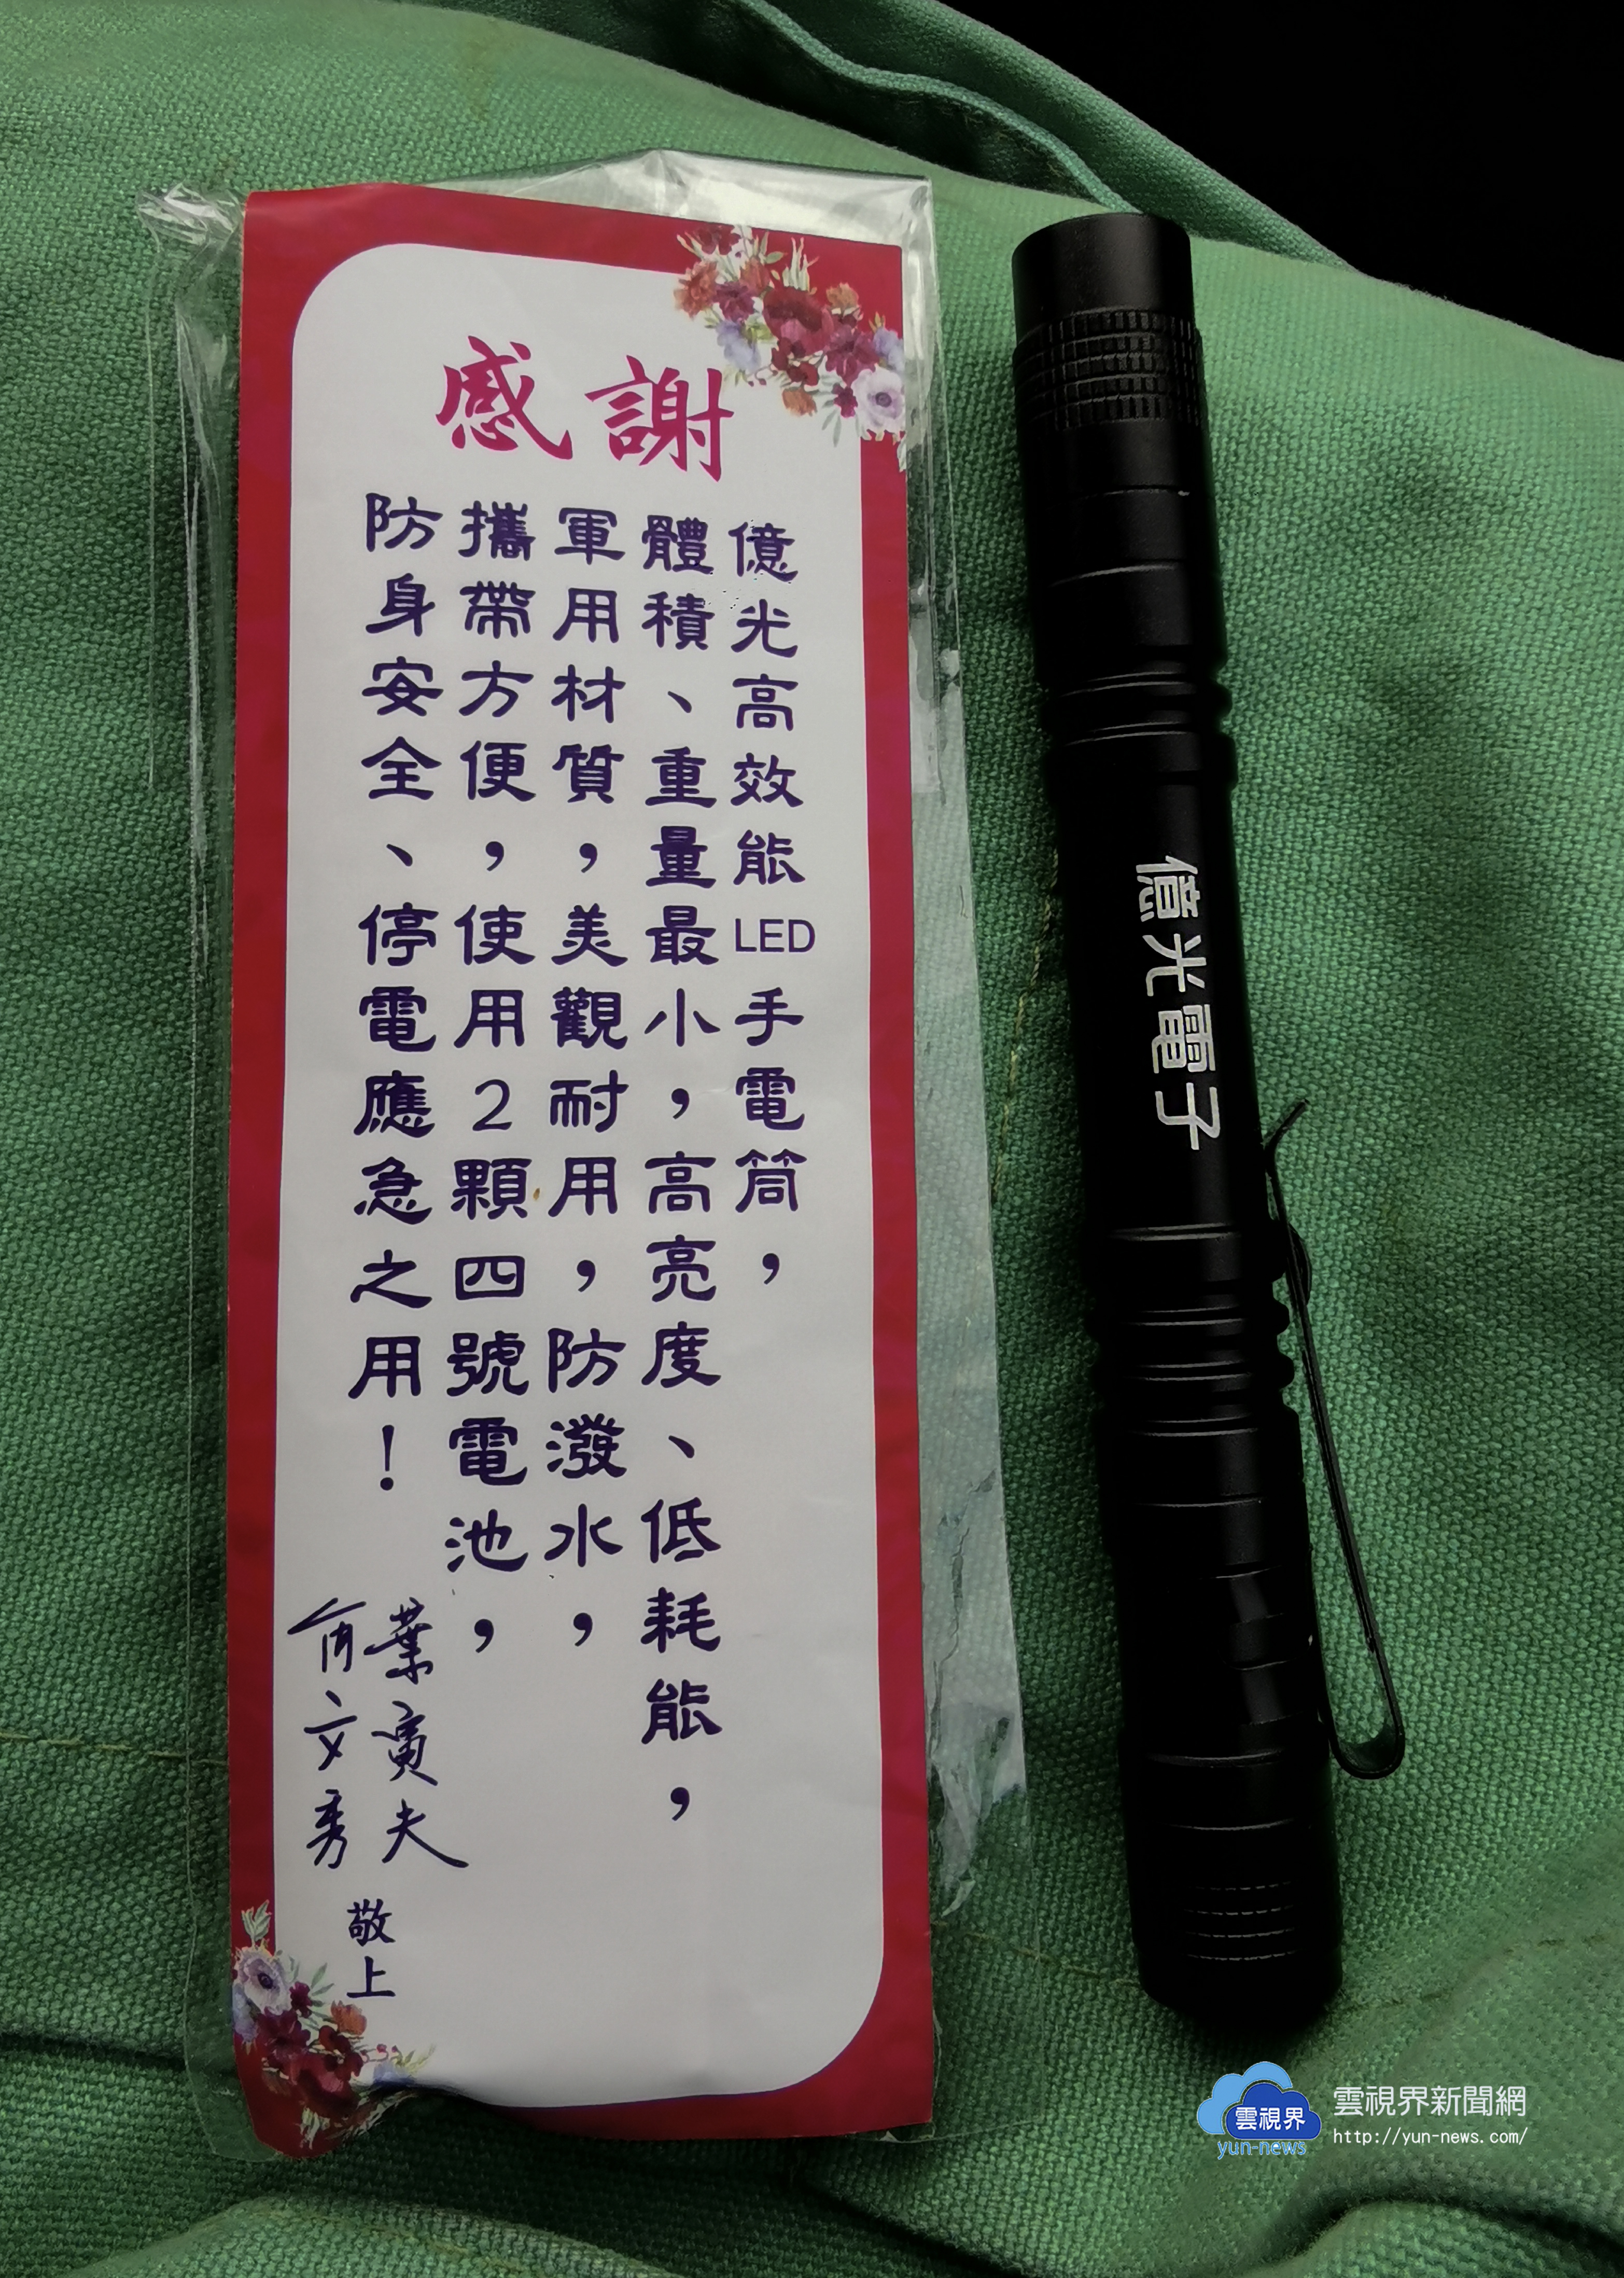 感謝
億光高效能LED手電筒，
體積、重量最小，高亮度、低耗能，
軍用材質，美觀耐用，防潑水，
攜帶方便，使用2顆四號電池，
防身安全、停電應急之用！
葉寅夫
俞文秀
敬上
億光電子
雲視界
yun-news
雲視界新聞網
http://yun-news.com/